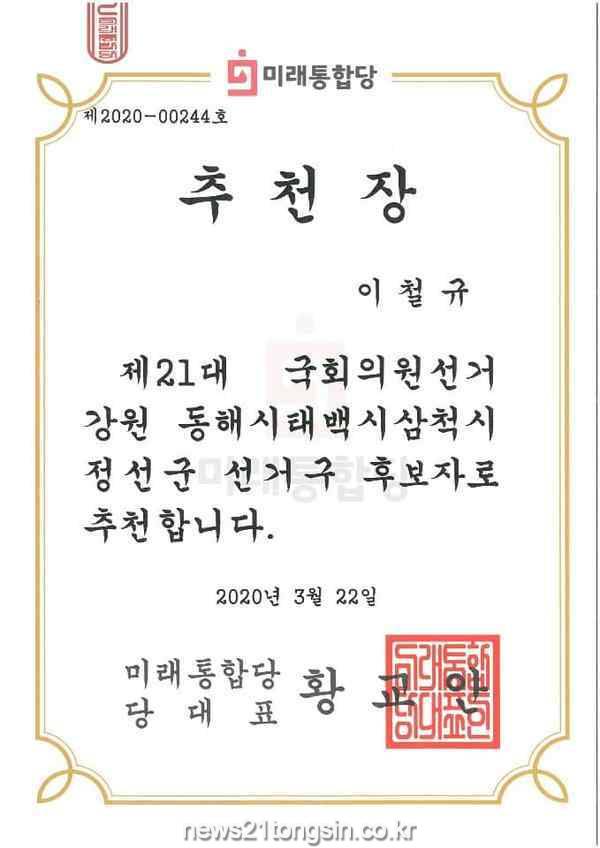 미래통합당
제2020-00244호
추천장
이철규
제21대 국회의원선거
강원 동해시태백시삼척시
정선군 선거구 후보자로
추천합니다.
2020년 3월 22일
미래통합당
당대표 황교안
news21tongsin.co.kr